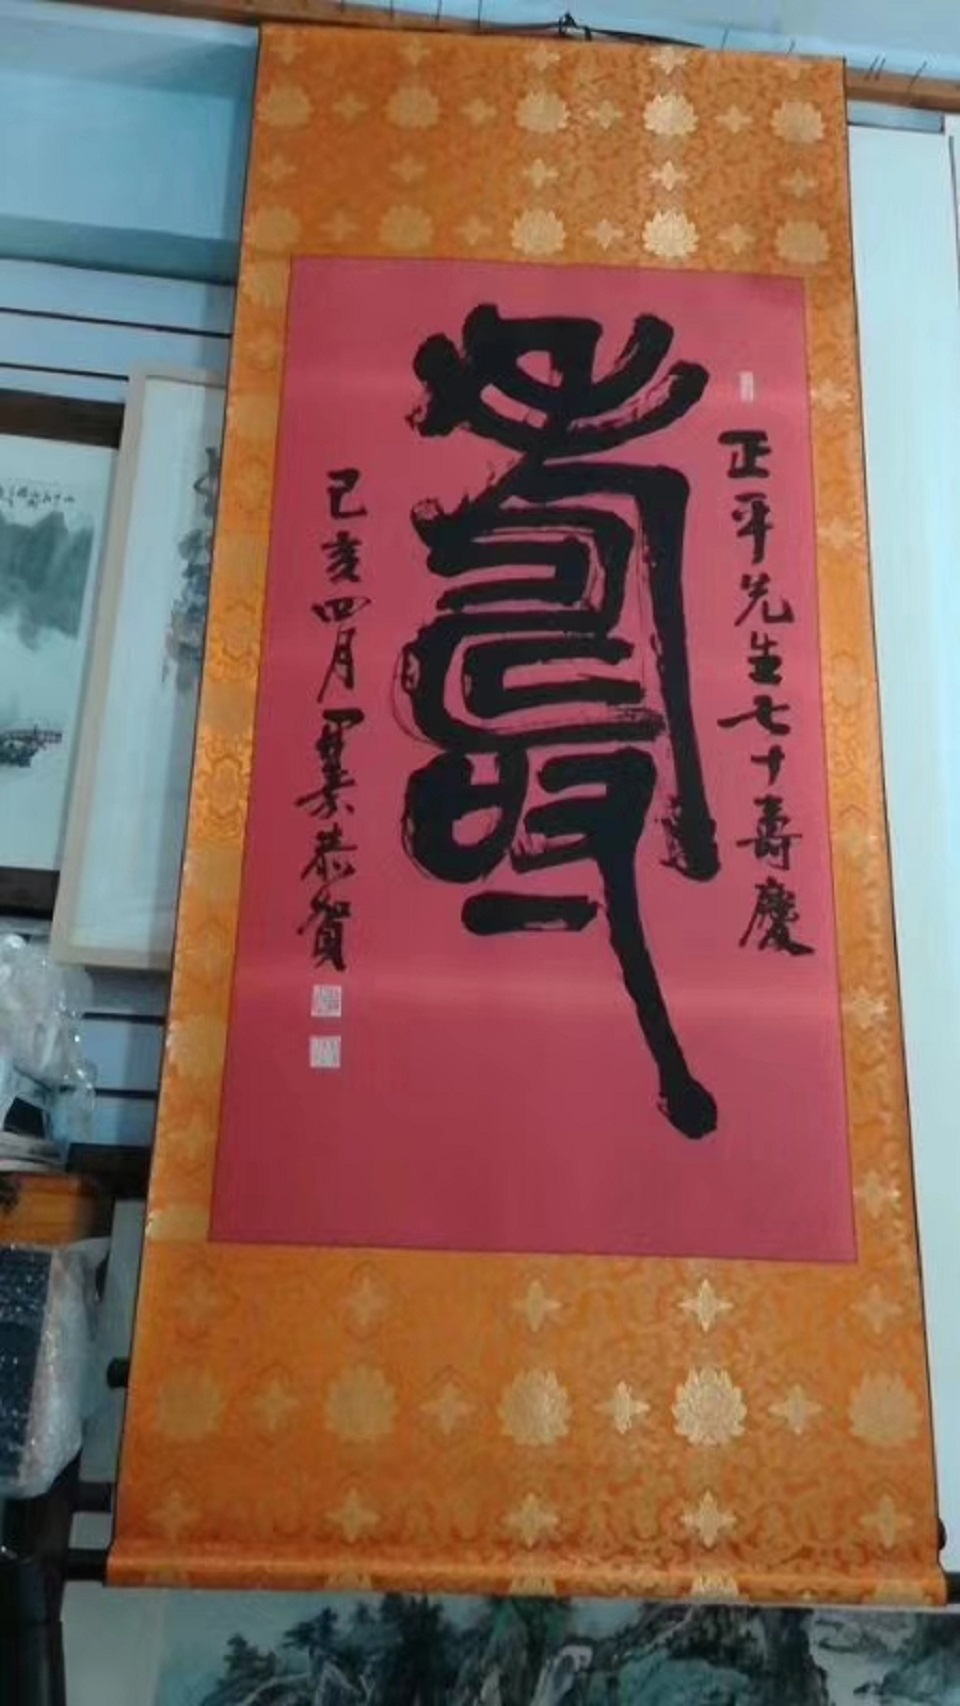 正平先生七十壽慶
壽
己亥四月
恭賀